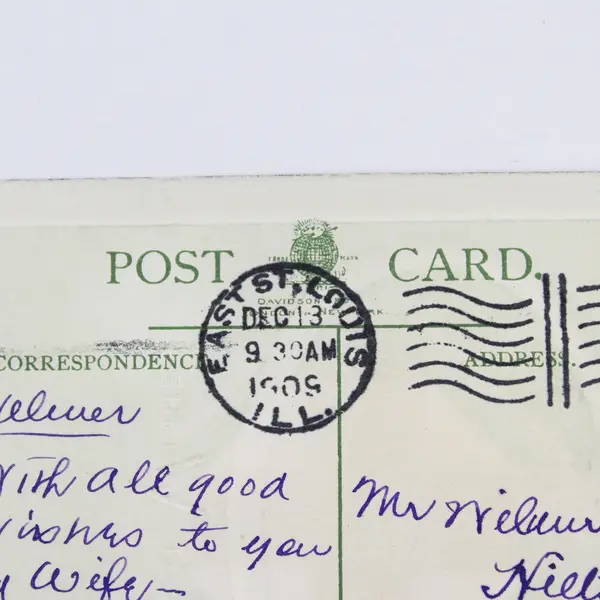 POST CARD.
TRADE MARK
DAVIDSON
LONDON & NEW YORK
EAST ST. LOUIS
DEC 13
9 30AM
1909
ILL.
CORRESPONDENCE
ADDRESS.
With all good
wishes to you
Wife—
Mr